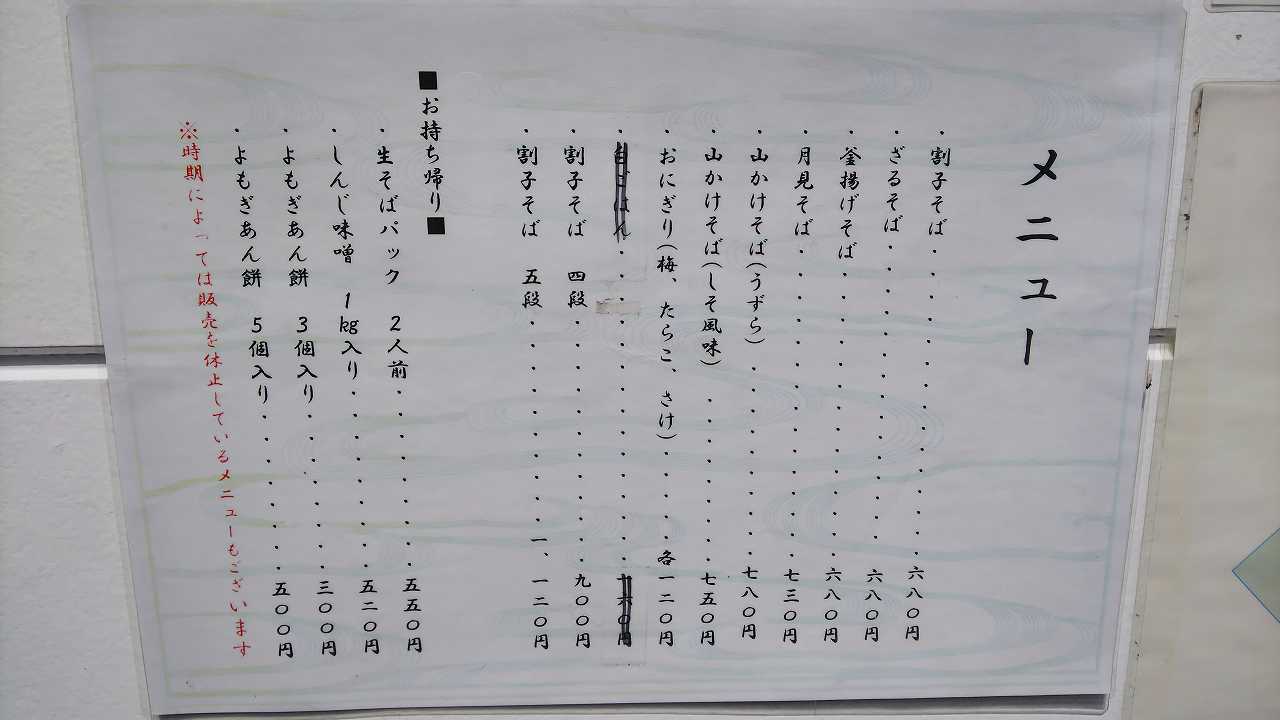 メニュー
・割子そば・・・・・・・・・・・・・・・六八〇円
・ざるそば・・・・・・・・・・・・・・六八〇円
・釜揚げそば・・・・・・・・・・・・・六八〇円
・月見そば・・・・・・・・・・・・・・・七三〇円
・山かけそば(うずら)・・・・・・・・・七八〇円
・山かけそば(しそ風味)・・・・・・・・七五〇円
・おにぎり(梅、たらこ、さけ)・・・・・各一二〇円
・割子そば　四段・・・・・・・・・・・九〇〇円
・割子そば　五段・・・・・・・・・・一、一二〇円
■お持ち帰り■
・生そばパック　2人前・・・・・・・・五五〇円
・しんじ味噌　1kg入り・・・・・・・・・五二〇円
・よもぎあん餅　3個入り・・・・・・・三〇〇円
・よもぎあん餅　5個入り・・・・・・・五〇〇円
※時期によっては販売を休止しているメニューもございます